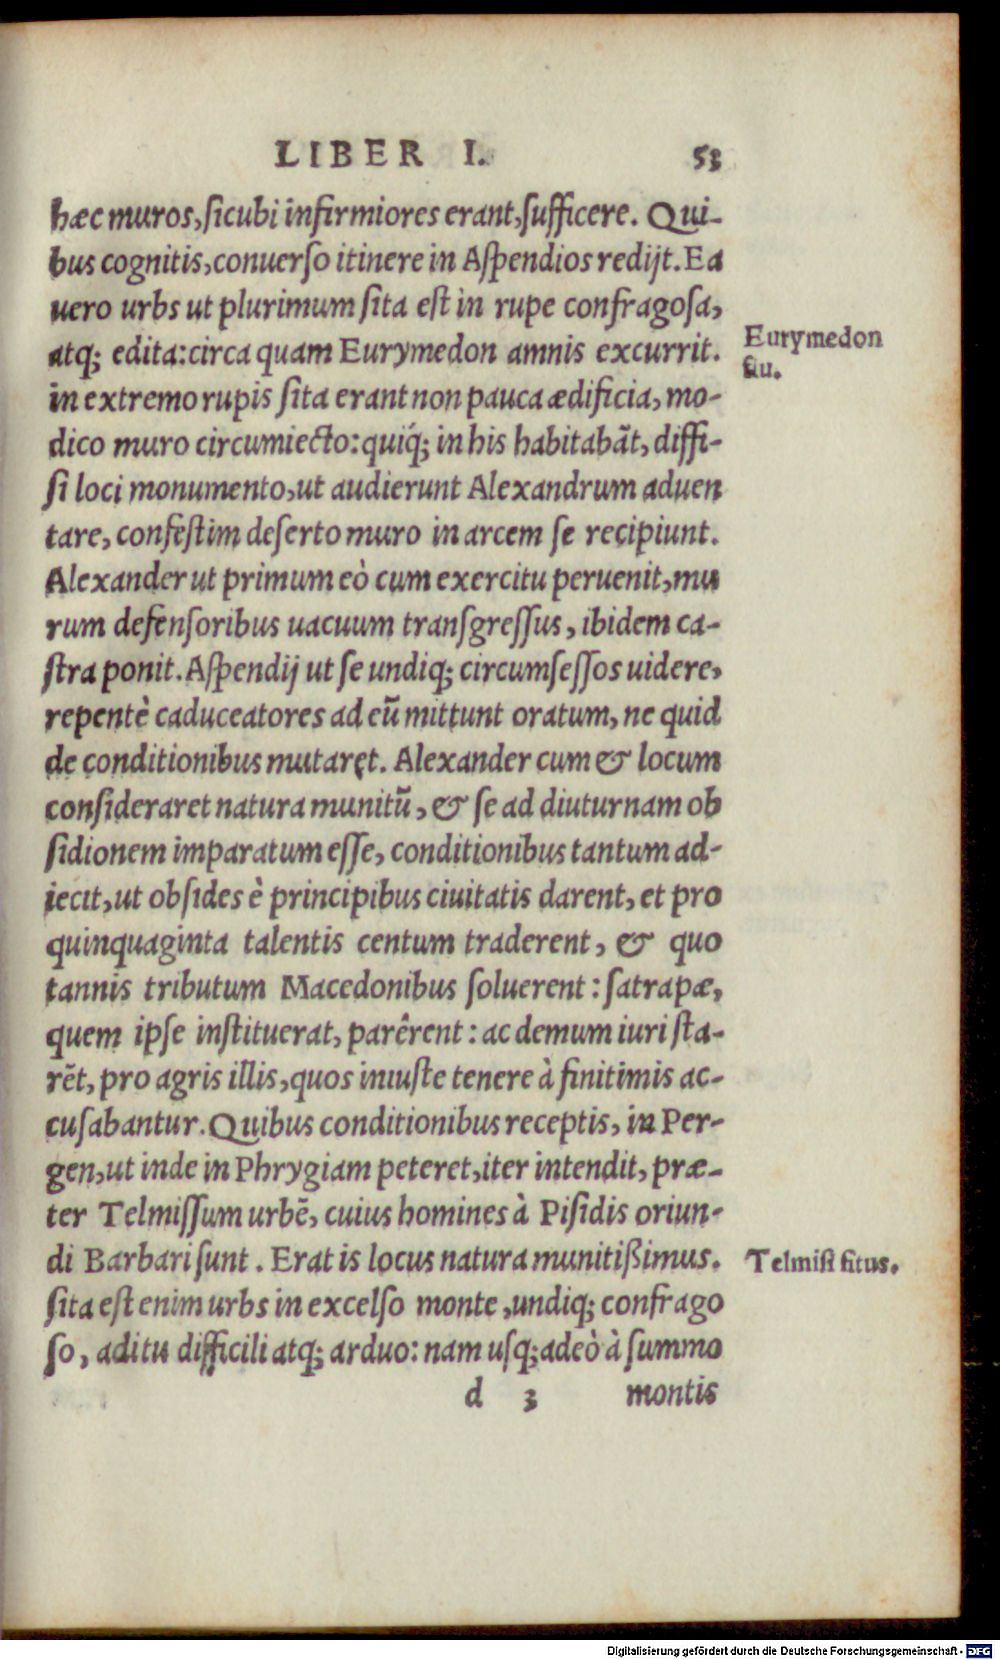 LIBER I. 53
hæc muros, sicubi infirmiores erant, sufficere. Qui-
bus cognitis, conuerso itinere in Aspendios redijt. Ea
uero urbs ut plurimum sita est in rupe confragosa,
atq; edita: circa quam Eurymedon amnis excurrit.
Eurymedon
flu.
in extremo rupis sita erant non pauca ædificia, mo-
dico muro circumiecto: quiq́; in his habitabãt, diffi-
si loci monumento, ut audierunt Alexandrum aduen
tare, confestim deserto muro in arcem se recipiunt.
Alexander ut primum eò cum exercitu peruenit, mu
rum defensoribus uacuum transgressus, ibidem ca-
stra ponit. Aspendij ut se undiq; circumsessos uidere,
repentè caduceatores ad eũ mittunt oratum, ne quid
de conditionibus mutaret. Alexander cum & locum
consideraret natura munitũ, & se ad diuturnam ob
sidionem imparatum esse, conditionibus tantum ad-
iecit, ut obsides è principibus ciuitatis darent, et pro
quinquaginta talentis centum traderent, & quo
tannis tributum Macedonibus soluerent: satrapæ,
quem ipse instituerat, parêrent: ac demum iuri sta-
rẽt, pro agris illis, quos iniuste tenere à finitimis ac-
cusabantur. Quibus conditionibus receptis, in Per-
gen, ut inde in Phrygiam peteret, iter intendit, præ-
ter Telmissum urbẽ, cuius homines à Pisidis oriun-
di Barbari sunt. Erat is locus natura munitißimus.
Telmisi situs.
sita est enim urbs in excelso monte, undiq; confrago
so, aditu difficili atq; arduo: nam usq; adeò à summo
d 3 montis
Digitalisierung gefördert durch die Deutsche Forschungsgemeinschaft - DFG